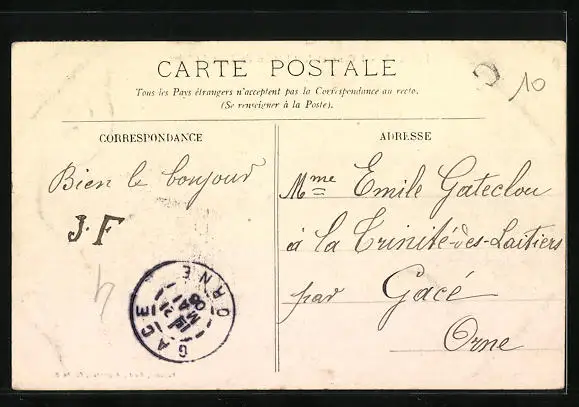 CARTE POSTALE
Tous les Pays étrangers n'acceptent pas la Correspondance au recto.
(Se renseigner à la Poste).
CORRESPONDANCE
Bien le bonjour
J. F
4
ADRESSE
10
Mme Emile Gateclou
à la Trinité-des-Laitiers
par Gacé
Orne
GACE
ORNE
21
MAI
06